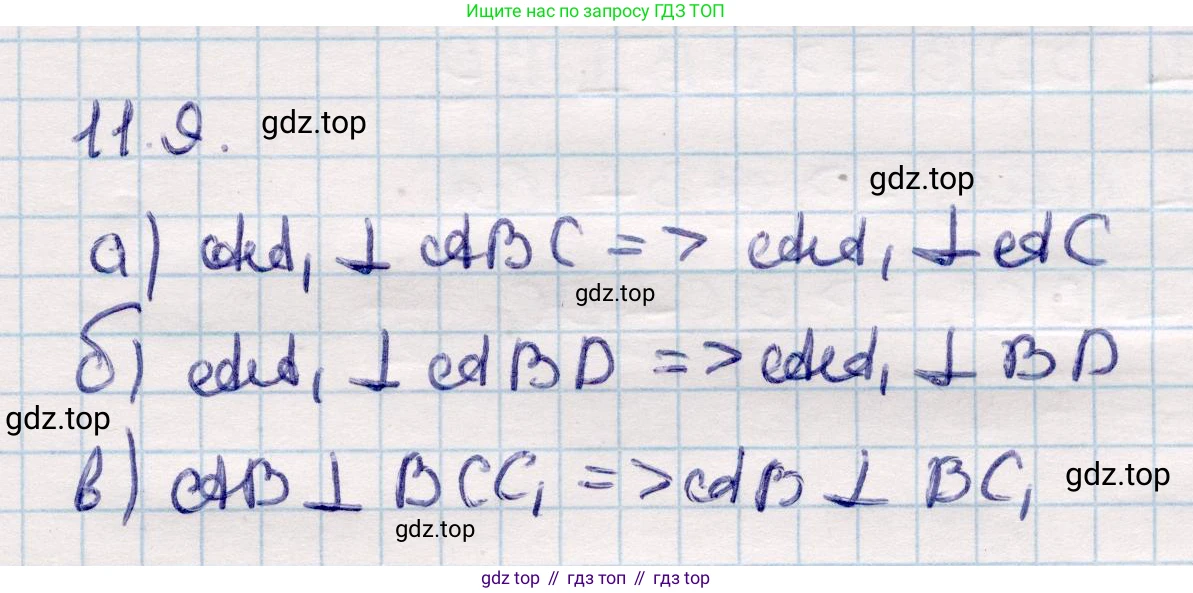 Ищите нас по запросу ГДЗ ТОП
11.9. gdz.top
gdz.top
а) AA₁ ⊥ ABC => AA₁ ⊥ AC
gdz.top
б) AA₁ ⊥ ABD => AA₁ ⊥ BD
gdz.top
в) AB ⊥ BCC₁ => AB ⊥ BC₁ gdz.top
gdz.top
gdz top // гдз топ // гдз top